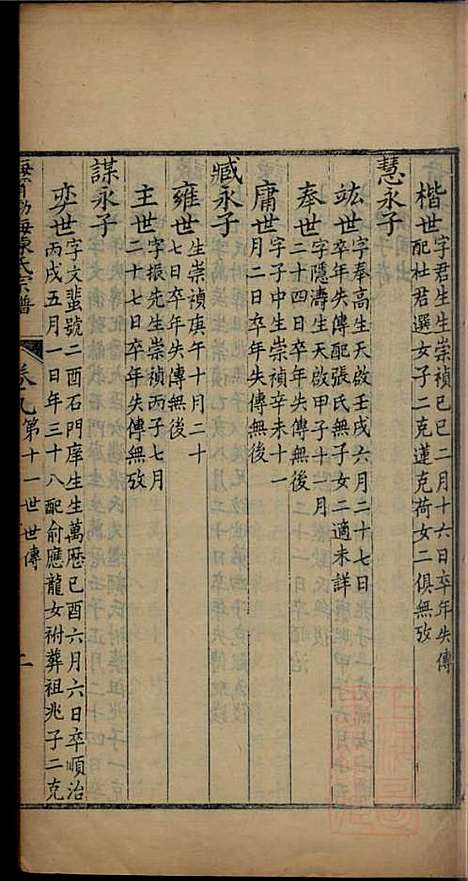 楷世字君生生崇禎己巳二月十六日卒年失傳
配杜君選女子二克蓮克荷女二俱無攷
慧永子
竑世字奉高生天啟壬戌六月二十七日
卒年失傳配張氏無子女二適未詳
奉世字隱濤生天啟甲子十一月
二十四日卒年失傳無後
庸世字子中生崇禎辛未十一
月二日卒年失傳無後
臧永子
雍世生崇禎庚午十月二十
七日卒年失傳無後
主世字振先生崇禎丙子七月
二十七日卒年失傳無攷
謀永子
奕世字文蜚號二酉石門庠生生萬歷己酉六月六日卒順治
丙戌五月一日年三十八配俞應龍女祔葬祖兆子二克
海寧渤海陳氏宗譜
卷九 第十一世世傳
二